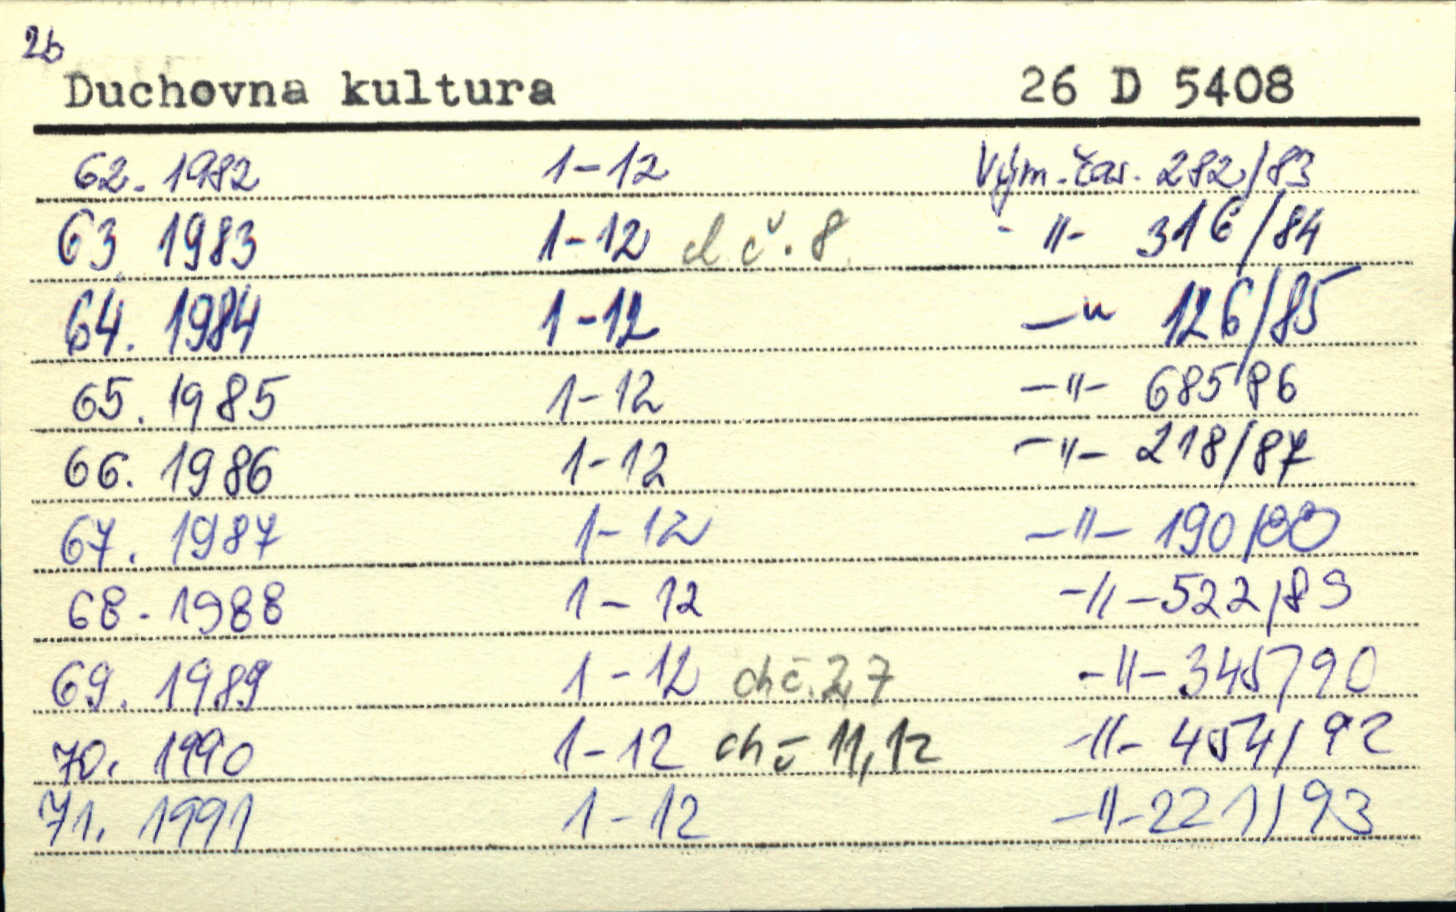 26
Duchovna kultura 26 D 5408
62. 1982 1-12 Vým. čas. 282/83
63 1983 1-12 ch č. 8 -"- 316/84
64. 1984 1-12 -"- 126/85
65. 1985 1-12 -"- 685/86
66. 1986 1-12 -"- 218/87
67. 1987 1-12 -"- 190/88
68. 1988 1-12 -"- 522/89
69. 1989 1-12 ch č. 2, 7 -"- 345/90
70. 1990 1-12 ch č 11, 12 -"- 454/92
71. 1991 1-12 -"- 221/93